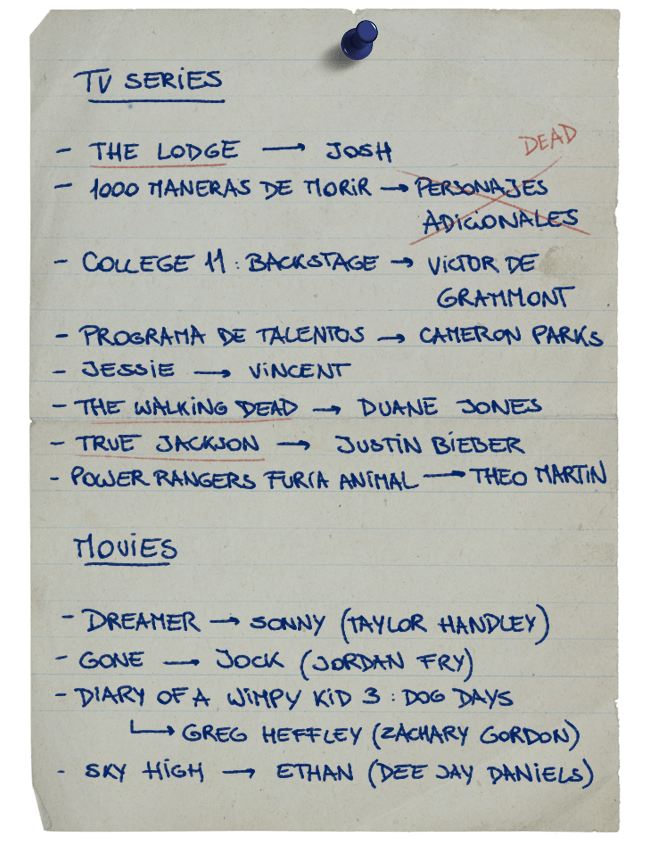 TV SERIES
- THE LODGE → JOSH
DEAD
- 1000 MANERAS DE MORIR → PERSONAJES
ADICIONALES
- COLLEGE 11 : BACKSTAGE → VICTOR DE
GRAMMONT
- PROGRAMA DE TALENTOS → CAMERON PARKS
- JESSIE → VINCENT
- THE WALKING DEAD → DUANE JONES
- TRUE JACKSON → JUSTIN BIEBER
- POWER RANGERS FURIA ANIMAL → THEO MARTIN
MOVIES
- DREAMER → SONNY (TAYLOR HANDLEY)
- GONE → JOCK (JORDAN FRY)
- DIARY OF A WIMPY KID 3 : DOG DAYS
↳ GREG HEFFLEY (ZACHARY GORDON)
- SKY HIGH → ETHAN (DEE JAY DANIELS)